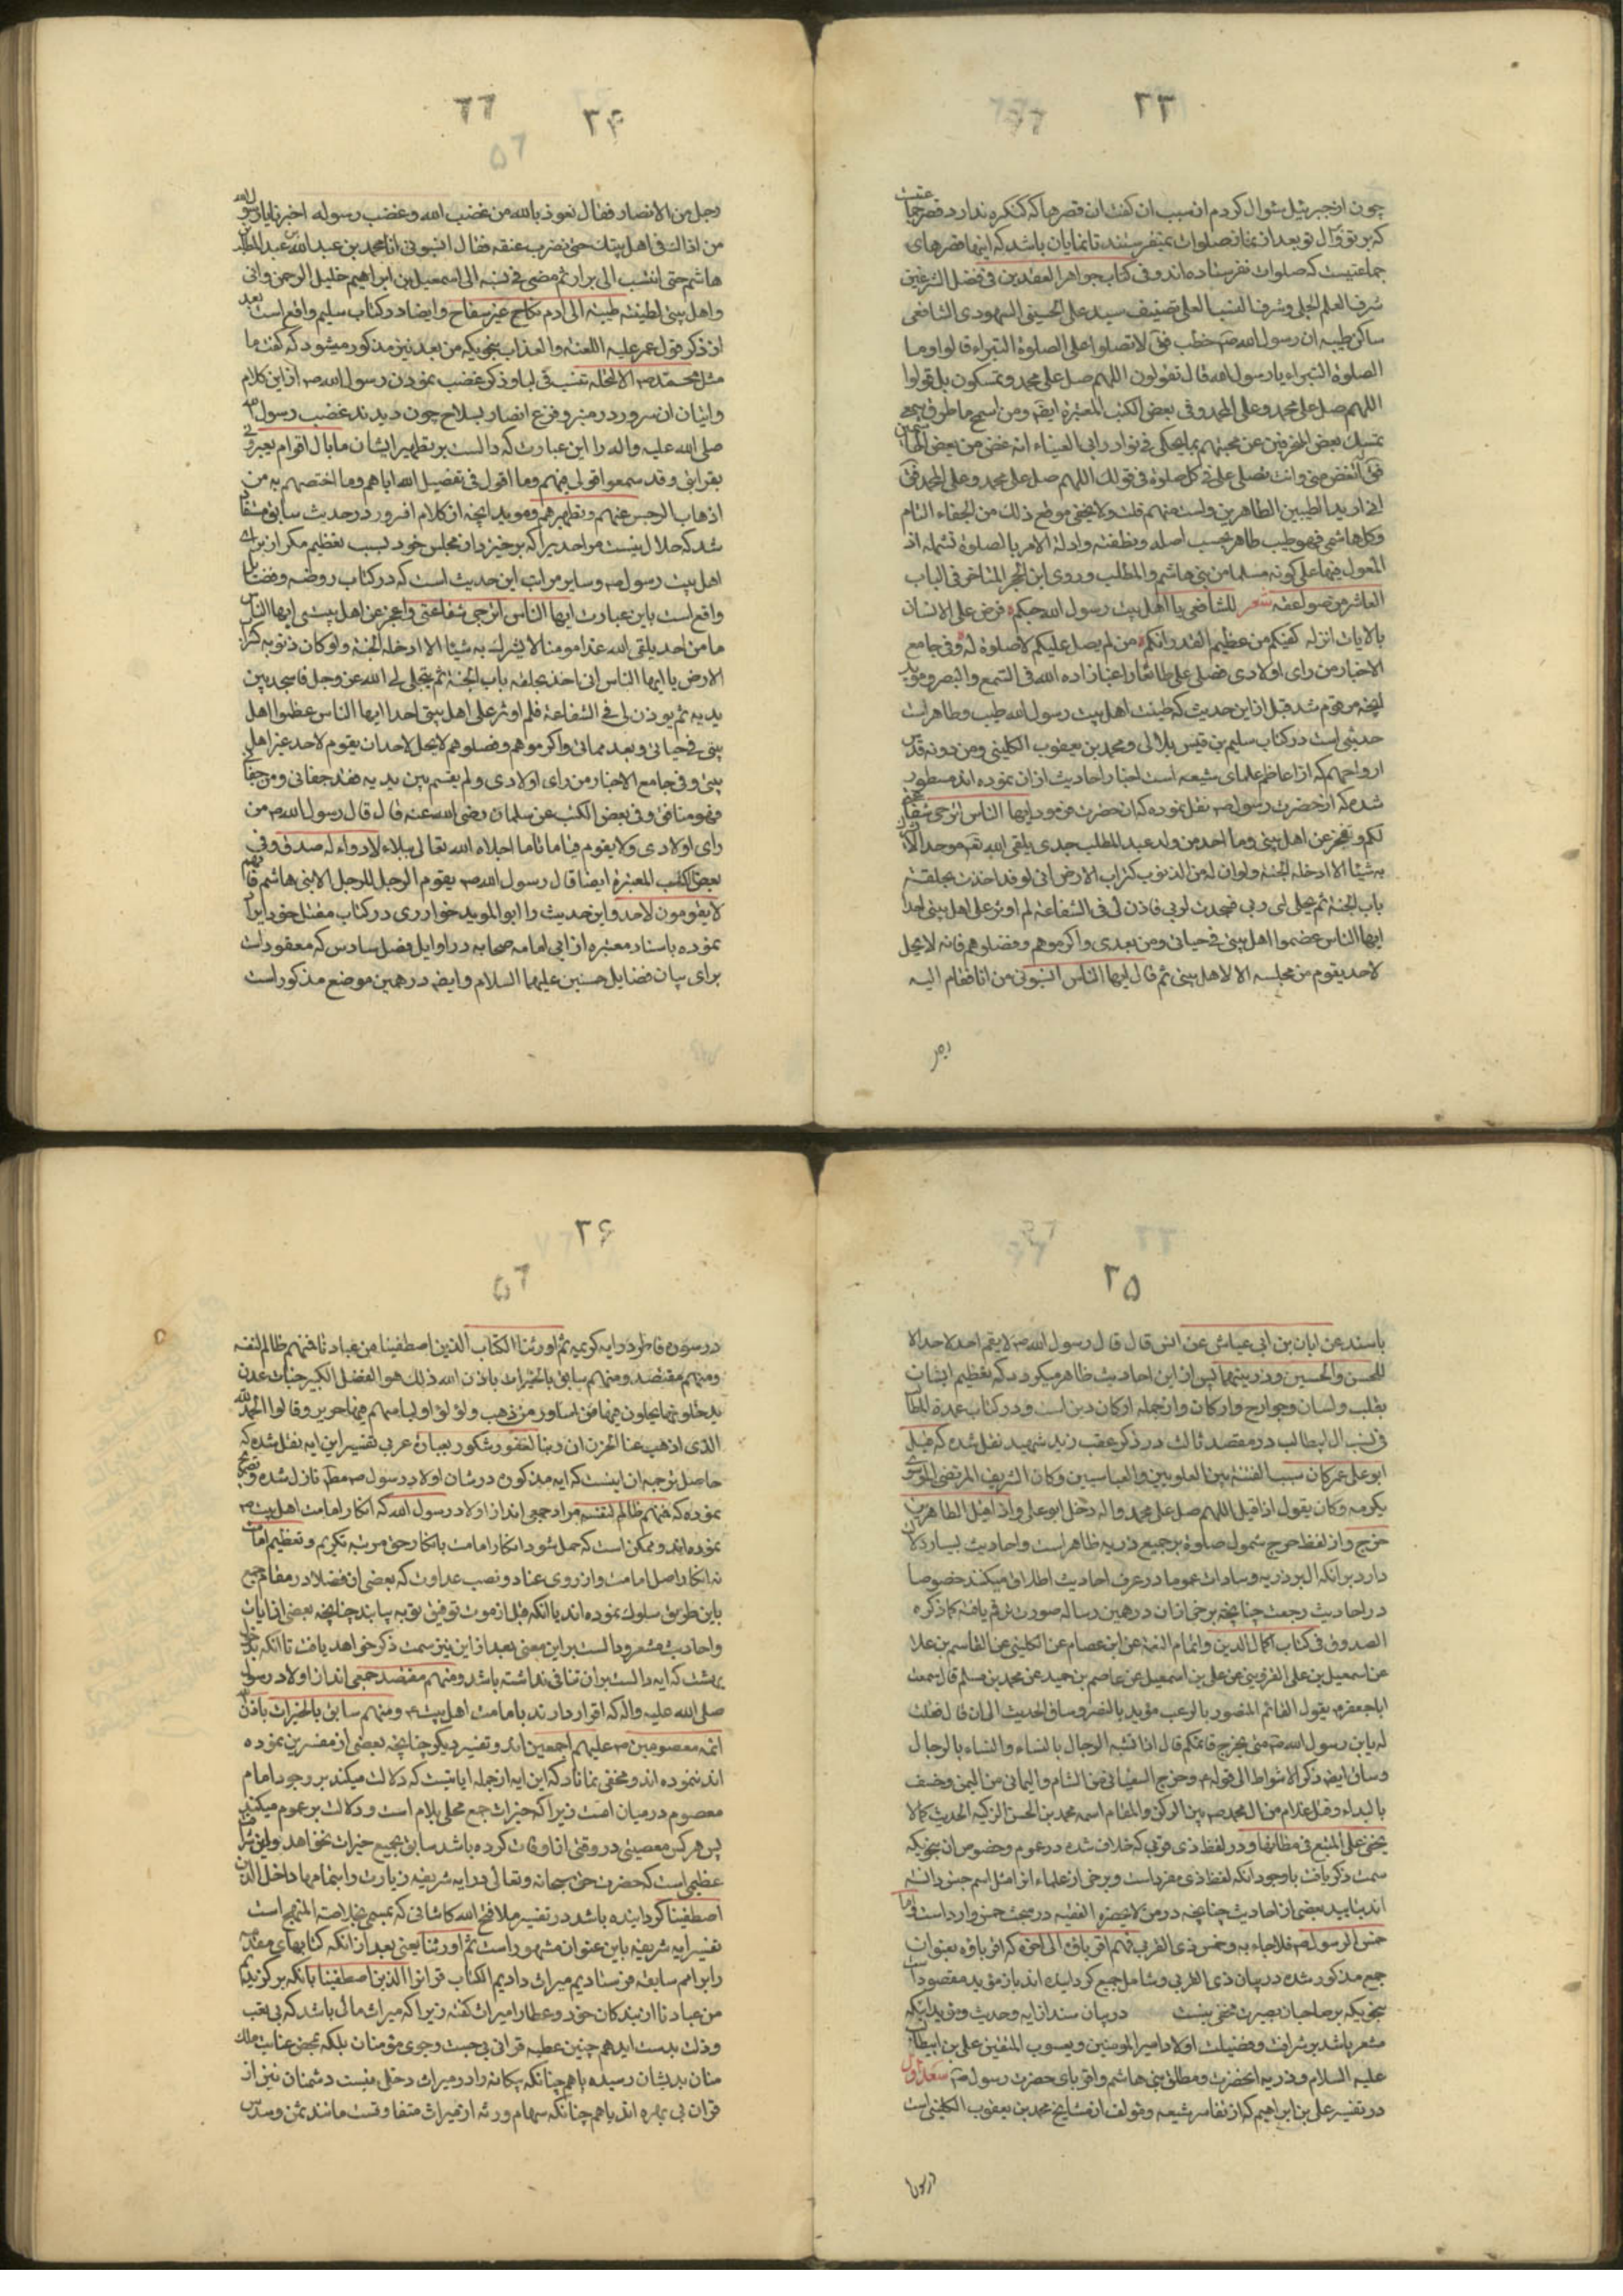 ۲۳
چون از جبرئیل سئوال کردم از سبب آن گفت آن قصرها که کنکره ندارد قصر جماعتیست
که بر تو و آل تو بعد از نماز صلوات نمیفرستند تا نمایان باشد که اینها قصرهای
جماعتیست که صلوات نفرستاده‌اند و فی کتاب جواهر العقدین فی فضل الشرفین
شرف العلم الجلی و شرف النسب العلی تصنیف سید علی الحسینی السمهودی الشافعی
ساکن طیبه ان رسول الله صم خطب فق لا تصلوا علی الصلوة البتراء قالوا وما
الصلوة البتراء یا رسول الله قال تقولون اللهم صل علی محمد و تمسکون بل قولوا
اللهم صل علی محمد و علی آل محمد و فی بعض الکتب المعتبرة ایضه ومن اسمج ما طرق سمعی
تمسک بعض المنحرفین عن محبتهم بما یحکی فی نوادر ابی العیناء انه غض من بعض الهاشمیین
فق اتغض منی وانت تصلی علی فی کل صلوة فی قولک اللهم صل علی محمد و علی آل محمد فق
انی ارید الطیبین الطاهرین ولست منهم قلت ولا یخفی موقع ذلک من الجفاء التام
وکل هاشمی فهو طیب طاهر بحسب اصله و نطفته و ادلة الامر بالصلوة تشمله اذ
المعول فیها علی کونه مسلما من بنی هاشم والمطلب و روی ابن الحجر المتاخر فی الباب
العاشر من صواعقه شعر للشافعی یا اهل بیت رسول الله حبکم فرض علی الانسان
بالایات انزله کفیکم من عظیم القدر انکم من لم یصل علیکم لا صلوة له و فی جامع
الاخبار من رای اولادی فصلی علی طائعا راغبا زاده الله فی السمع والبصر و مؤید
آنچه مرقوم شد قبل از این حدیث که طینت اهل بیت رسول الله طیب و طاهر است
حدیثی است در کتاب سلیم بن قیس هلالی و محمد بن یعقوب الکلینی ومن دونه قدس
ارواحهم که از اعاظم علمای شیعه است اخبار احادیث از آن نموده اند مسطور
شده که از حضرت رسول صم نقل نموده که ان حضرت فرمود ایها الناس اترجی شفاعتی
لکم و تعجز عن اهل بیتی وما احد من ولد عبد المطلب جدی یلقی الله تعه موحدا لا
به شیئا الا ادخله الجنة ولو ان له من الذنوب کتراب الارض انی لو قد اخذت بحلقة
باب الجنة ثم تجلی لی ربی فسجدت لربی فاذن لی فی الشفاعة لم اوثر علی اهل بیتی احدا
ایها الناس عضموا اهل بیتی فی حیاتی ومن بعدی واکرموهم وفضلوهم فانه لا یحل
لاحد یقوم من مجلسه الا لاهل بیتی ثم قال ایها الناس انسبونی من انا فقام الیه
۲۴
رجل من الانصار فقال نعوذ بالله من غضب الله و غضب رسوله اخبرنا یا رسول الله
من اذاک فی اهل بیتک حتی نضرب عنقه فقال انسبونی انا محمد بن عبد الله بن عبد المطلب
هاشم حتی انتسب الی نزار ثم مضی فی نسبه الی اسمعیل بن ابراهیم خلیل الرحمن وانی
واهل بیتی لطینة طیبة الی آدم نکاح غیر سفاح وایضا در کتاب سلیم واقع است بعد
از ذکر قول عمر علیه اللعنه والعذاب بنحویکه من بعد نیز مذکور میشود که گفت ما
مثل محمد صم الا نخلة تنبت فی لبا و ذکر غضب نمودن رسول الله صم از این کلام
واتیان ان سرور در منبر و فزع انصار بسلاح چون دیدند غضب رسول
صلی الله علیه واله را این عبارت که دالست بر تطهیر ایشان ما بال اقوام یعیرونی
بقرابتی وقد سمعوا قولی فیهم وما اقول فی تفضیل الله ایاهم وما اختصهم به من
اذهاب الرجس عنهم وتطهیرهم و موید آنچه از کلام آن سرور در حدیث سابق مستفاد
شد که حلال نیست مر احدیرا که برخیزد از مجلس خود بسبب تعظیم مگر از برای
اهل بیت رسول صم و سایر مراتب این حدیث است که در کتاب روضه و فضایل
واقع است باین عبارت ایها الناس اترجی شفاعتی واعجز عن اهل بیتی ایها الناس
ما من احد یلقی الله غدا مومنا لا یشرک به شیئا الا ادخله الجنة ولو کان ذنوبه کتراب
الارض یا ایها الناس انی اخذ بحلقه باب الجنة ثم یتجلی لی الله عز وجل فاسجد بین
یدیه ثم یوذن لی فی الشفاعة فلم اوثر علی اهل بیتی احدا ایها الناس عظموا اهل
بیتی فی حیاتی و بعد مماتی واکرموهم وفضلوهم لا یحل لاحد ان یقوم لاحد غیر اهل
بیتی و فی جامع الاخبار من رای اولادی ولم یقم بین یدیه فقد جفانی ومن جفانی
فهو منافق و فی بعض الکتب عن سلمان رضی الله عنه قال قال رسول الله صم من
رای اولادی ولا یقوم قیاما تاما ابتلاه الله تعالی ببلاء لا دواء له صدق و فی
بعض الکتب المعتبرة ایضا قال رسول الله صم یقوم الرجل للرجل الا بنی هاشم فانهم
لا یقومون لاحد و این حدیث را ابو الموید خوارزمی در کتاب مقتل خود ایراد
نموده باسناد معتبره از ابی امامه صحابه در اوایل فصل سادس که معقود است
برای بیان فضایل حسنین علیهما السلام و ایضه در همین موضع مذکور است
۲۵
باسند عن ابان بن ابی عیاش عن انس قال قال رسول الله صم لا یقم احد لاحد الا
للحسن والحسین و ذریتهما پس از این احادیث ظاهر میگردد که تعظیم ایشان
بقلب و لسان و جوارح و ارکان و از جمله ارکان دین است و در کتاب عمدة الطالب
فی نسب آل ابیطالب در مقصد ثالث در ذکر عقب زید شهید نقل شده که قبل
ابو علی عمر کان سبب الفتنة بین العلویین والعباسیین وکان الشریف المرتضی الموسوی
یکرمه وکان یقول اذا قیل اللهم صل علی محمد واله دخل ابو علی واذا قیل الطاهرین
خرج و از لفظ خرج شمول صلوة بر جمیع ذریه ظاهر است و احادیث بسیار دلالت
دارد بر آنکه آل بر ذریه و سادات عموما در عرف احادیث اطلاق میکنند خصوصا
در احادیث رجعت چنانچه برخی از آن در همین رساله صورت ترقیم یافته کما ذکره
الصدوق فی کتاب اکمال الدین و اتمام النعمة عن ابن عصام عن الکلینی عن القاسم بن علا
عن اسمعیل بن علی القزوینی عن علی بن اسمعیل عن عاصم بن حمید عن محمد بن مسلم قال سمعت
ابا جعفر ع یقول القائم المنصور بالرعب مؤید بالنصر وساق الحدیث الی ان قال قلت
له یابن رسول الله صم متی یخرج قائمکم قال اذا تشبه الرجال بالنساء والنساء بالرجال
وساق ایضه ذکر الاشراط الی قوله ع وخرج السفیانی من الشام والیمانی من الیمن وخسف
بالبیداء وقتل غلام من آل محمد صم بین الرکن والمقام اسمه محمد بن الحسن الزکیه الحدیث کما لا
یخفی علی المتتبع فی مظانها و در لفظ ذی قربی که خلاف شده در عموم و خصوص آن بنحویکه
سمت ذکر یافت با وجود آنکه لفظ ذی مفرد است و برخی از علماء از امثال اسم جنس دانسته
اند بتایید بعضی از احادیث چنانچه در من لا یحضره الفقیه در مبحث خمس وارد است
خمس الرسول صم فلاجاء به وخمس ذی القربی فهم اقرباؤه الی اخره که اقرباؤه بعنوان
جمع مذکور شده در بیان ذی القربی و شامل جمیع گردانیده اند باز مؤید مقصود است
بنحویکه بر صاحبان بصیرت مخفی نیست در بیان سند از آیه و حدیث و مؤید آنکه
مشعر باشد بر شرافت و فضیلت اولاد امیر المومنین و یعسوب المتقین علی بن ابیطالب
علیه السلام و ذریه آنحضرت و مطلق بنی هاشم و اقربای حضرت رسول صم سعد اول
در تفسیر علی بن ابراهیم که از تفاسیر شیعه و مؤلف از مشایخ محمد بن یعقوب الکلینی است
۲۶
در سوره فاطر در آیه کریمه ثم اورثنا الکتاب الذین اصطفینا من عبادنا فمنهم ظالم لنفسه
ومنهم مقتصد ومنهم سابق بالخیرات باذن الله ذلک هو الفضل الکبیر جنات عدن
یدخلونها یحلون فیها من اساور من ذهب ولؤلؤا ولباسهم فیها حریر وقالوا الحمد لله
الذی اذهب عنا الحزن ان ربنا لغفور شکور بعبارة عربی تفسیر این آیه نقل شده که
حاصل ترجمه آن اینست که آیه مذکوره در شان اولاد رسول صم مطلقا نازل شده و تصریح
نموده که فمنهم ظالم لنفسه مراد جمعی‌اند از اولاد رسول الله که انکار امامت اهل بیت ع
نموده‌اند و ممکن است که حمل شود انکار امامت بانکار حق مرتبه تکریم و تعظیم امامت
نه انکار اصل امامت و از روی عناد و نصب عداوت که بعضی از فضلا در مقام جمع
باین طریق سلوک نموده‌اند با آنکه قبل از موت توفیق توبه بیابند چنانچه بعضی از آیات
و احادیث مشعر و دالست بر این معنی بعد از این نیز سمت ذکر خواهد یافت تا آنکه بدخول
بهشت که آیه دالست بر آن تنافی نداشته باشد و منهم مقتصد جمعی اند از اولاد رسول
صلی الله علیه واله که اقرار دارند بامامت اهل بیت ع ومنهم سابق بالخیرات باذن الله
ائمه معصومین ص علیهم اجمعین اند و تفسیر دیگر چنانچه بعضی از مفسرین نموده
اند ننموده اند و مخفی نماناد که این آیه از جمله آیاتیست که دلالت میکند بر وجود امام
معصوم در میان امت زیرا که خیرات جمع محلی بلام است و دلالت بر عموم میکند
پس هر کس معصیتی در وقتی از اوقات کرده باشد سابق بجمیع خیرات نخواهد بود و این شرافت
عظیمی است که حضرت حق سبحانه و تعالی در آیه شریفه ذریات و ابتمامها داخل الذین
اصطفینا گردانیده باشد در تفسیر ملا فتح الله کاشانی که بمسمی بخلاصة المنهج است
تفسیر آیه شریفه باین عنوان مشهور است ثم اورثنا یعنی بعد از آنکه کتابهای مقدمه
را بر امم سابقه فرستادیم میراث دادیم الکتاب قرآنرا الذین اصطفینا بآنکه برگزیدیم
من عبادنا از بندگان خود و عطا را میراث گفته زیرا که میراث مالی باشد که بی تعب
و ذلت بدست آید همچنین عطیه قرآنی بی جست وجوی مؤمنان بلکه بمحض عنایت ملک
منان بدیشان رسیده یا همچنانکه بیگانه را در میراث دخلی نیست دشمنان نیز از
قرآن بی بهره اند یا همچنانکه سهام ورثه از میراث متفاوتست مانند ثمن و سدس